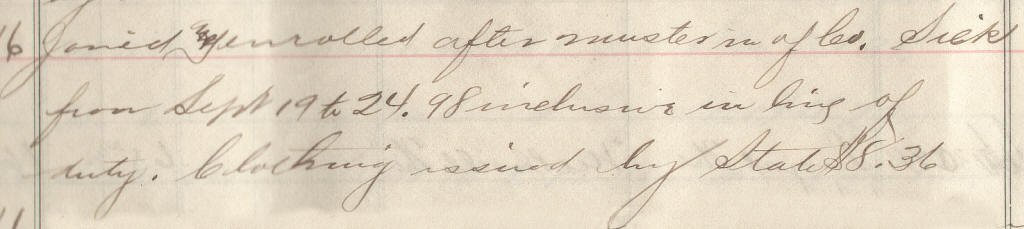 16 Joined & enrolled after muster in of Co. Sick
from Sept 19 to 24. 98 inclusive in line of
duty. Clothing issued by State $8.36